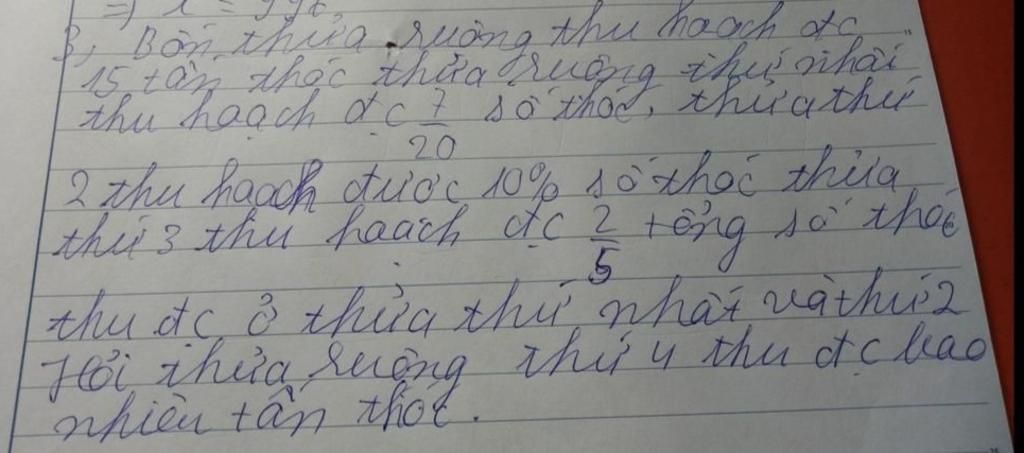 => x = 996
3, Bốn thửa ruộng thu hoạch đc
15 tấn thóc thửa ruộng thứ nhất
thu hoạch đc 7/20 số thóc, thửa thứ
2 thu hoạch được 10% số thóc thửa
thứ 3 thu hoạch đc 2/5 tổng số thóc
thu đc ở thửa thứ nhất và thứ 2
Hỏi thửa ruộng thứ 4 thu đc bao
nhiêu tấn thóc.